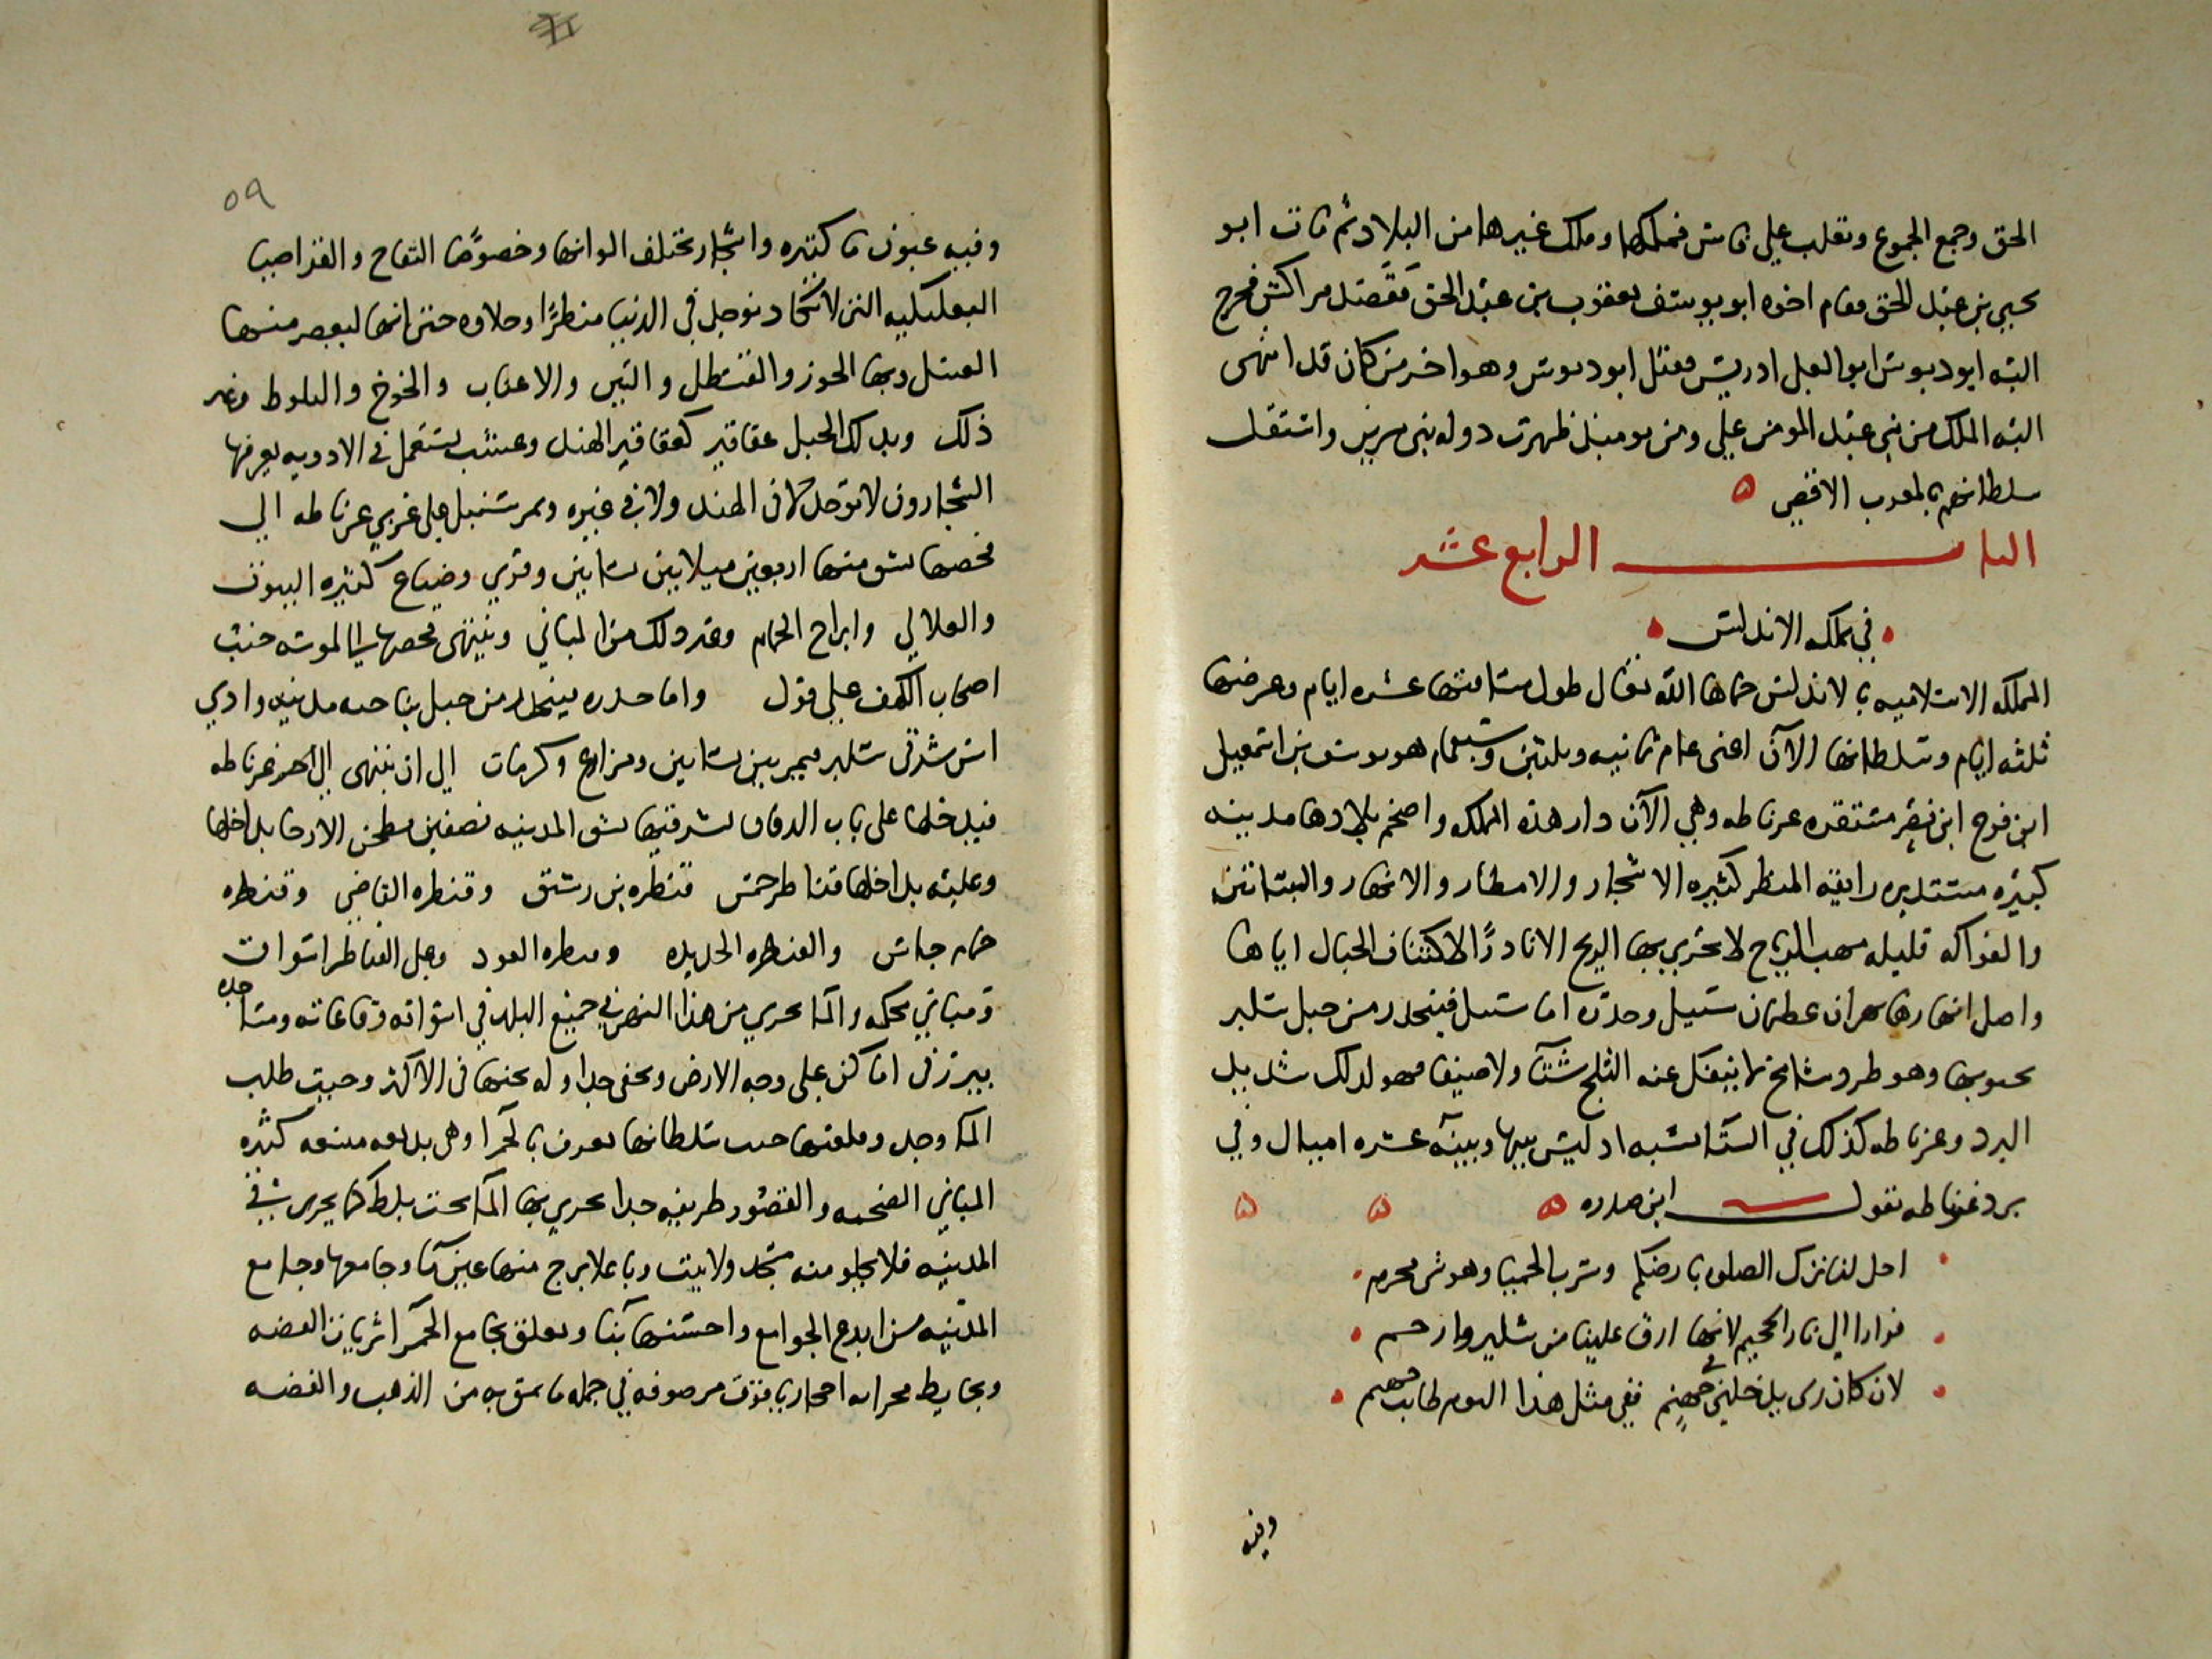 الحق وجمع الجموع وتغلب على فاس فملكها وملك غيرها من البلاد ثم مات ابو
يحيى بن عبد الحق وقام اخوه ابو يوسف يعقوب بن عبد الحق فقصد مراكش فخرج
اليه ابو دبوس ابو العلا ادريس فقتل ابو دبوس وهو اخر من كان قد انتهى
اليه الملك من بني عبد المومن علي ومن يوميذ ظهرت دوله بني مرين واستقل
سلطانهم بالمغرب الاقصى ه
الباب الرابع عشر
في مملكه الاندلس
المملكه الاسلاميه بالاندلس حماها الله تعالى طول مسافتها عشره ايام وعرضها
ثلثه ايام وسلطانها الآن اعني عام ثمانيه وثلثين وسبعمايه هو يوسف بن اسمعيل
ابن فرج ابن نصر مستقره غرناطه وهي الآن دار هذه المملكه واضخم بلادها مدينه
كبيره مستديره رايقه المنظر كثيره الاشجار والامطار والانهار والبساتين
والفواكه قليله مهب الرياح لا تجري بها الريح الا نادرًا لاكتناف الجبال اياها
واصل انهارها نهران عظيمان شنيل وحدره اما شنيل فينحدر من جبل شلير
بجنوبها وهو طود شامخ لا ينفك عنه الثلج شتآ ولا صيفا فهو لذلك شديد
البرد وغرناطه كذلك في الشتا بسببه اذ ليس بينها وبينه عشره اميال وفي
برد غرناطه يقول ابن صدره ه ه ه
احل لنا ترك الصلوه بارضكم وشرب الحميا وهو شي محرم
فرارا الى نار الجحيم لانها ارق علينا من شلير وارحم
لان كان ربي يدخلني في جهنم ففي مثل هذا اليوم طابت جهنم
وفيه
٥٩
وفيه عيون ما كثيره واشجار تختلف الوانها وخصوصًا التفاح والقراصيا
البعلبكيه التي لا تكاد توجد في الدنيا منظرًا وحلاوه حتى انها ليعصر منها
العسل وبها الجوز والقسطل والتين والاعناب والخوخ والبلوط وغير
ذلك وبذلك الجبل عقاقير كعقاقير الهند وعشب يستعمل في الادويه يعرفها
الشجارون لا توجد لا في الهند ولا في غيره ويمر شنيل على غربي غرناطه الى
فحصها يشق منها اربعين ميلا بين بساتين وقري وضياع كثيره البيوت
والعلالي وابراج الحمام وغير ذلك من المباني وينتهى فحصها الى لوشه حيث
اصحاب الكهف على قول واما حدره فينحدر من جبل بناحيه مدينه وادي
اش شرقي شلير فيمر بين بساتين ومزارع وكرمات الى ان ينتهى الى غرناطه
فيدخلها على باب الدفاف بشرقيها يشق المدينه نصفين يطحن الارحا بداخلها
وعليه بداخلها قناطر خمس قنطره بن رشيق وقنطره القاضي وقنطره
حمام جاس والقنطره الجديده وقنطره العود وعلى القناطر اسواق
ومباني محكمه والما يجري من هذا النهر في جميع البلد في اسواقه وقاعاته ومساجده
يبرز في اماكن على وجه الارض وتخفى جداوله تحتها في الاكثر وحيث طلب
الما وجد وقلعتها حيث سلطانها تعرف بالحمرا وهي بديعه متسعه كثيره
المباني الضخمه والقصور ظريفه جدا يجري بها الما تحت بلاط كما يجري في
المدينه فلا يخلو منه مسجد ولا بيت وباعلا برج منها عين ما وجامعها وجامع
المدينه من ابدع الجوامع واحسنها بنا وتعلق بجامع الحمرا ثريات الفضه
وبحايط محرابه احجار ياقوت مرصوفه في جمله ما نمق به من الذهب والفضه